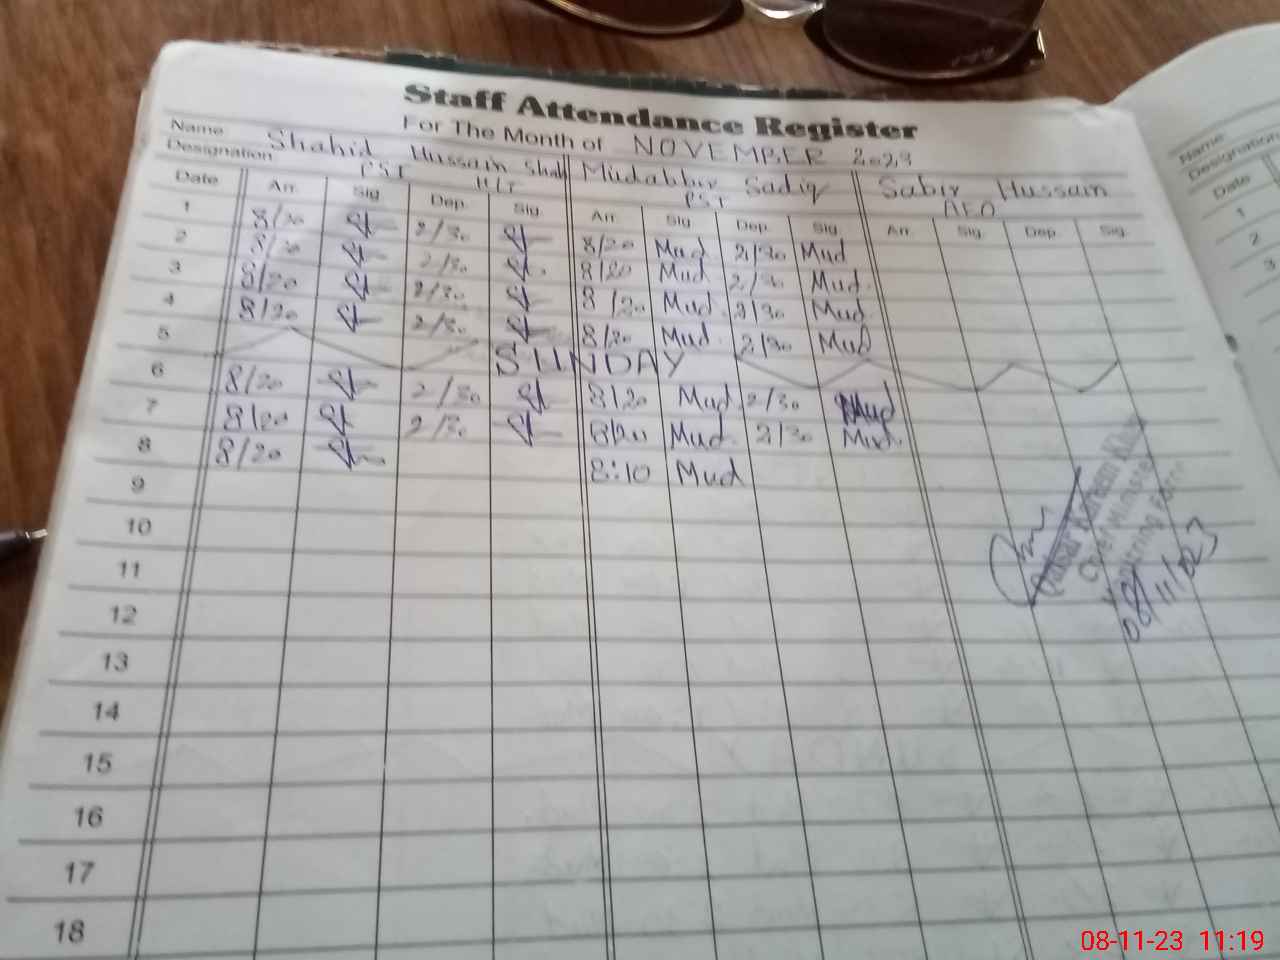 Staff Attendance Register
For The Month of NOVEMBER 2023
Name Shahid Hussain Shah Mudabbir Sadiq Sabir Hussain Name
Designation PST PST Designation
Date Arr. Sig. Dep. Sig. Arr. Sig. Dep. Sig. Arr. Sig. Dep. Sig. Date
1 8/20 2/30 8/20 Mud 2/30 Mud 1
2 8/20 2/30 8/20 Mud 2/30 Mud. 2
3 8/20 2/30 8/20 Mud. 2/30 Mud. 3
4 8/20 2/30 8/20 Mud. 2/30 Mud
5 SUNDAY
6 8/20 2/30 8/20 Mud. 2/30 Mud
7 8/20 2/30 8/20 Mud. 2/30 Mud.
8 8/20 8:10 Mud
9
10
11
12
13
14
15
16
17
18
Chief Minister
08/11/023
08-11-23 11:19